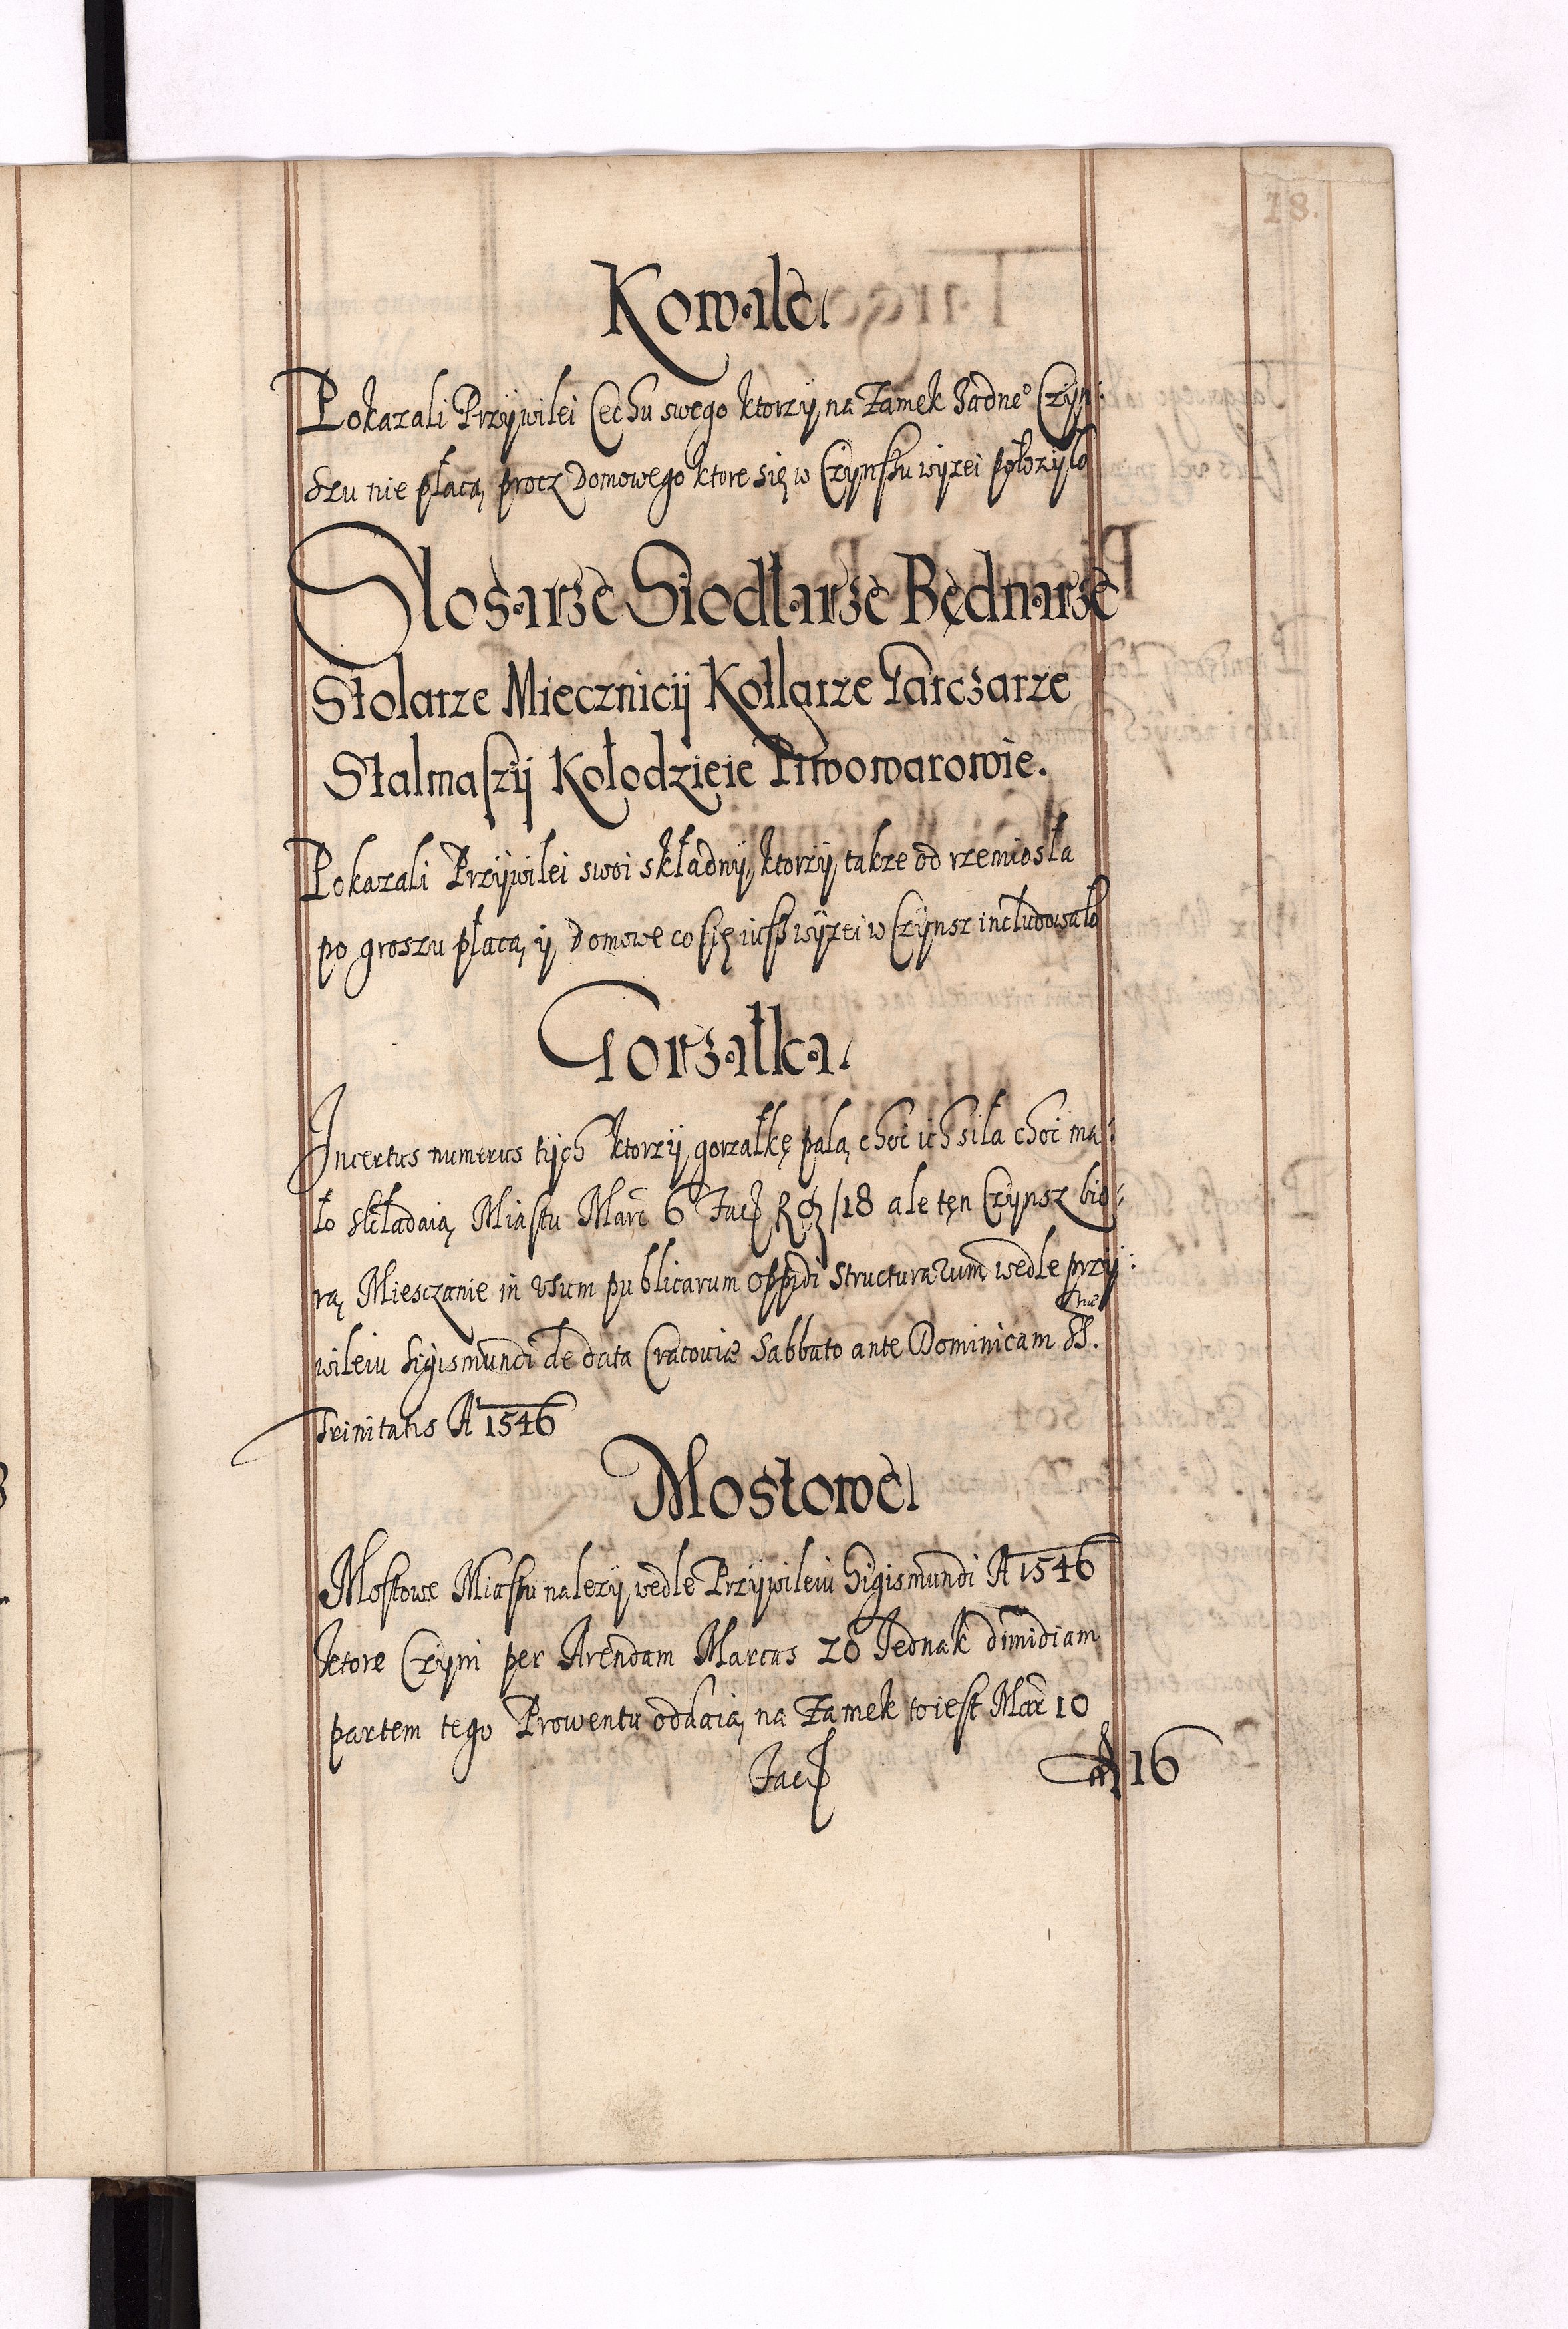 18.
Kowale
Pokazali Przÿwilei Cechu swego ktorzÿ na Zamek Żadneº Czÿn:
szu nie płacą procz Domowego ktore się w Czÿnszu wÿzei połozÿło
Slosarze Siodłarze Będnarze
Stolarze Miecznicÿ Kotlarze Tarczarze
Stalmaszÿ Kołodzieie Piwowarowie.
Pokazali Przÿwilei swoi składnÿ, ktorzÿ takze od rzemiosła
po groszu płacą ÿ Domowe co się iusz wÿzei w Czÿnsz includowało
Gorzałka
Incertus numerus tÿch ktorzÿ gorzałkę palą choi ich siła choi ma:
ło składaią Miastu Marc 6 Fac /18 ale tęn Czÿnsz bio:
rą Miesczanie in Vsum publicarum oppidi structurarum wedle przÿ:
wileiu Sigismundi de data Cracoviæ Sabbato ante Dominicam SS.
Trinitatis A 1546
Mostowe
Mostowe Miastu nalezÿ wedle Przÿwileiu Sigismundi A 1546
ktore Czÿni per Arendam Marcas 20 Jednak dimidiam
partem tego Prowentu oddaią na Zamek to iest Mar 10
Fac 16